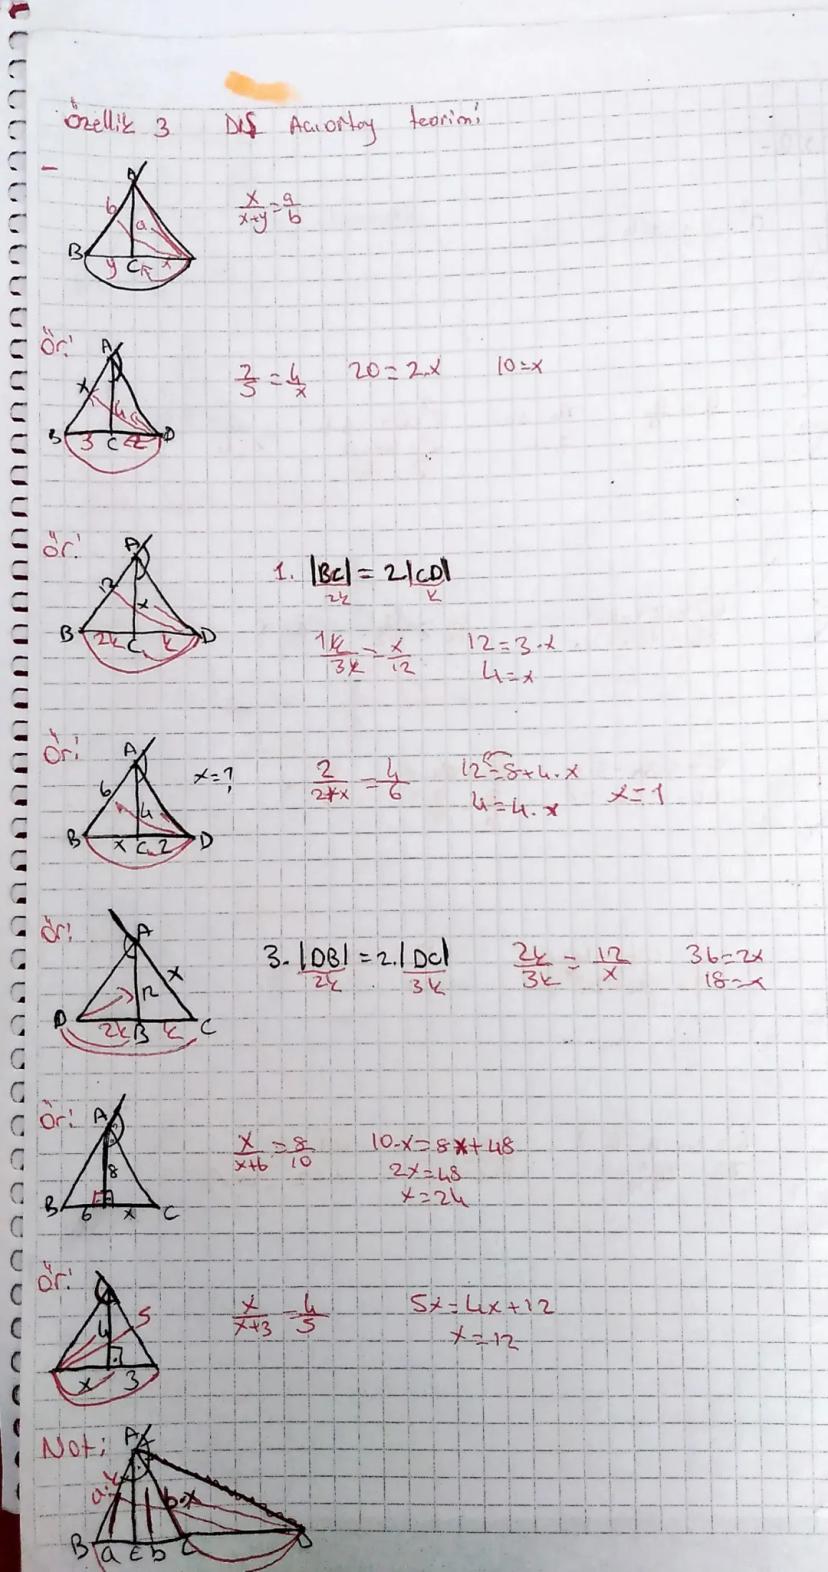 Özellik 3 Dış Acıortay teorimi
A
b
a
B y C x
x/x+y = a/b
Ör:
A
x
4
B 3 C 2 D
2/5 = 4/x 20=2.x 10=x
Ör:
A
12
x
B 2k C k D
1. |BC| = 2|CD|
2k k
1k/3k = x/12 12=3.x
4=x
Ör:
A
x=?
6
4
B x C 2 D
2/2+x = 4/6 12=8+4.x
4=4.x x=1
Ör:
A
x
12
D 2k B k C
3.|DB| = 2.|DC|
2k 3k
2k/3k = 12/x 36=2x
18=x
Ör:
A
8
B 6 x C
x/x+6 = 8/10 10.x=8x+48
2x=48
x=24
Ör:
4 5
x 3
x/x+3 = 4/5 5x=4x+12
x=12
Not:
A
a.x b.x
B a E b C D